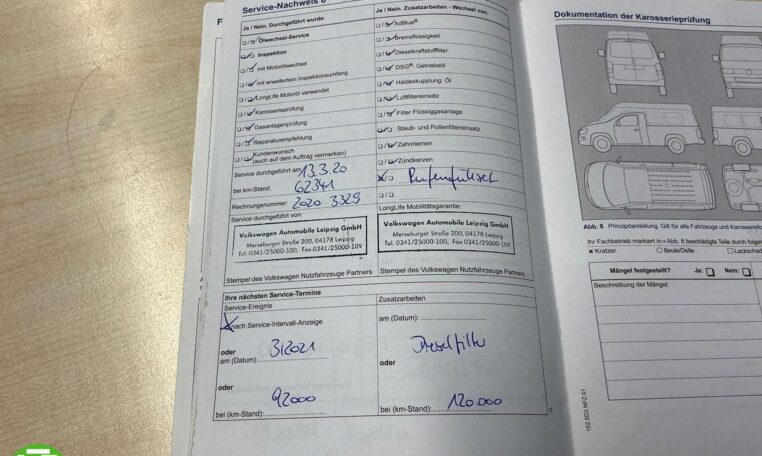 Service-Nachweis
Ja / Nein. Durchgeführt wurde:
Ölwechsel-Service
Inspektion
mit Motorölwechsel
mit erweitertem Inspektionsumfang
LongLife Motoröl verwendet
Karosserieprüfung
Gasanlagenprüfung
Reparaturempfehlung
Kundenwunsch
(auch auf dem Auftrag vermerken)
Service durchgeführt am 13.3.20
bei km-Stand: 62341
Rechnungsnummer: 2020 3329
Service durchgeführt von:
Volkswagen Automobile Leipzig GmbH
Merseburger Straße 200, 04178 Leipzig
Tel. 0341/25000-100, Fax 0341/25000-109
Stempel des Volkswagen Nutzfahrzeuge Partners
Ja / Nein. Zusatzarbeiten - Wechsel von:
AdBlue®
Bremsflüssigkeit
Dieselkraftstofffilter
DSG®. Getriebeöl
Haldexkupplung: Öl
Luftfiltereinsatz
Filter Flüssiggasanlage
Staub- und Pollenfiltereinsatz
Zahnriemen
Zündkerzen
LongLife Mobilitätsgarantie:
Volkswagen Automobile Leipzig GmbH
Merseburger Straße 200, 04178 Leipzig
Tel. 0341/25000-100, Fax 0341/25000-109
Stempel des Volkswagen Nutzfahrzeuge Partners
Ihre nächsten Service-Termine
Service-Ereignis
nach Service-Intervall-Anzeige
oder
am (Datum): 3/2021
oder
bei (km-Stand): 92000
Zusatzarbeiten
am (Datum):
Dieselfilter
oder
bei (km-Stand): 120.000
Dokumentation der Karosserieprüfung
Abb. 8 Prinzipdarstellung. Gilt für alle Fahrzeuge und
Ihr Fachbetrieb markiert in ⇒ Abb. 8 beschädigte Teile durch
x Kratzer O Beule/Delle
Mängel festgestellt? Ja: Nein:
Beschreibung der Mängel:
152.5D3.NFZ.01